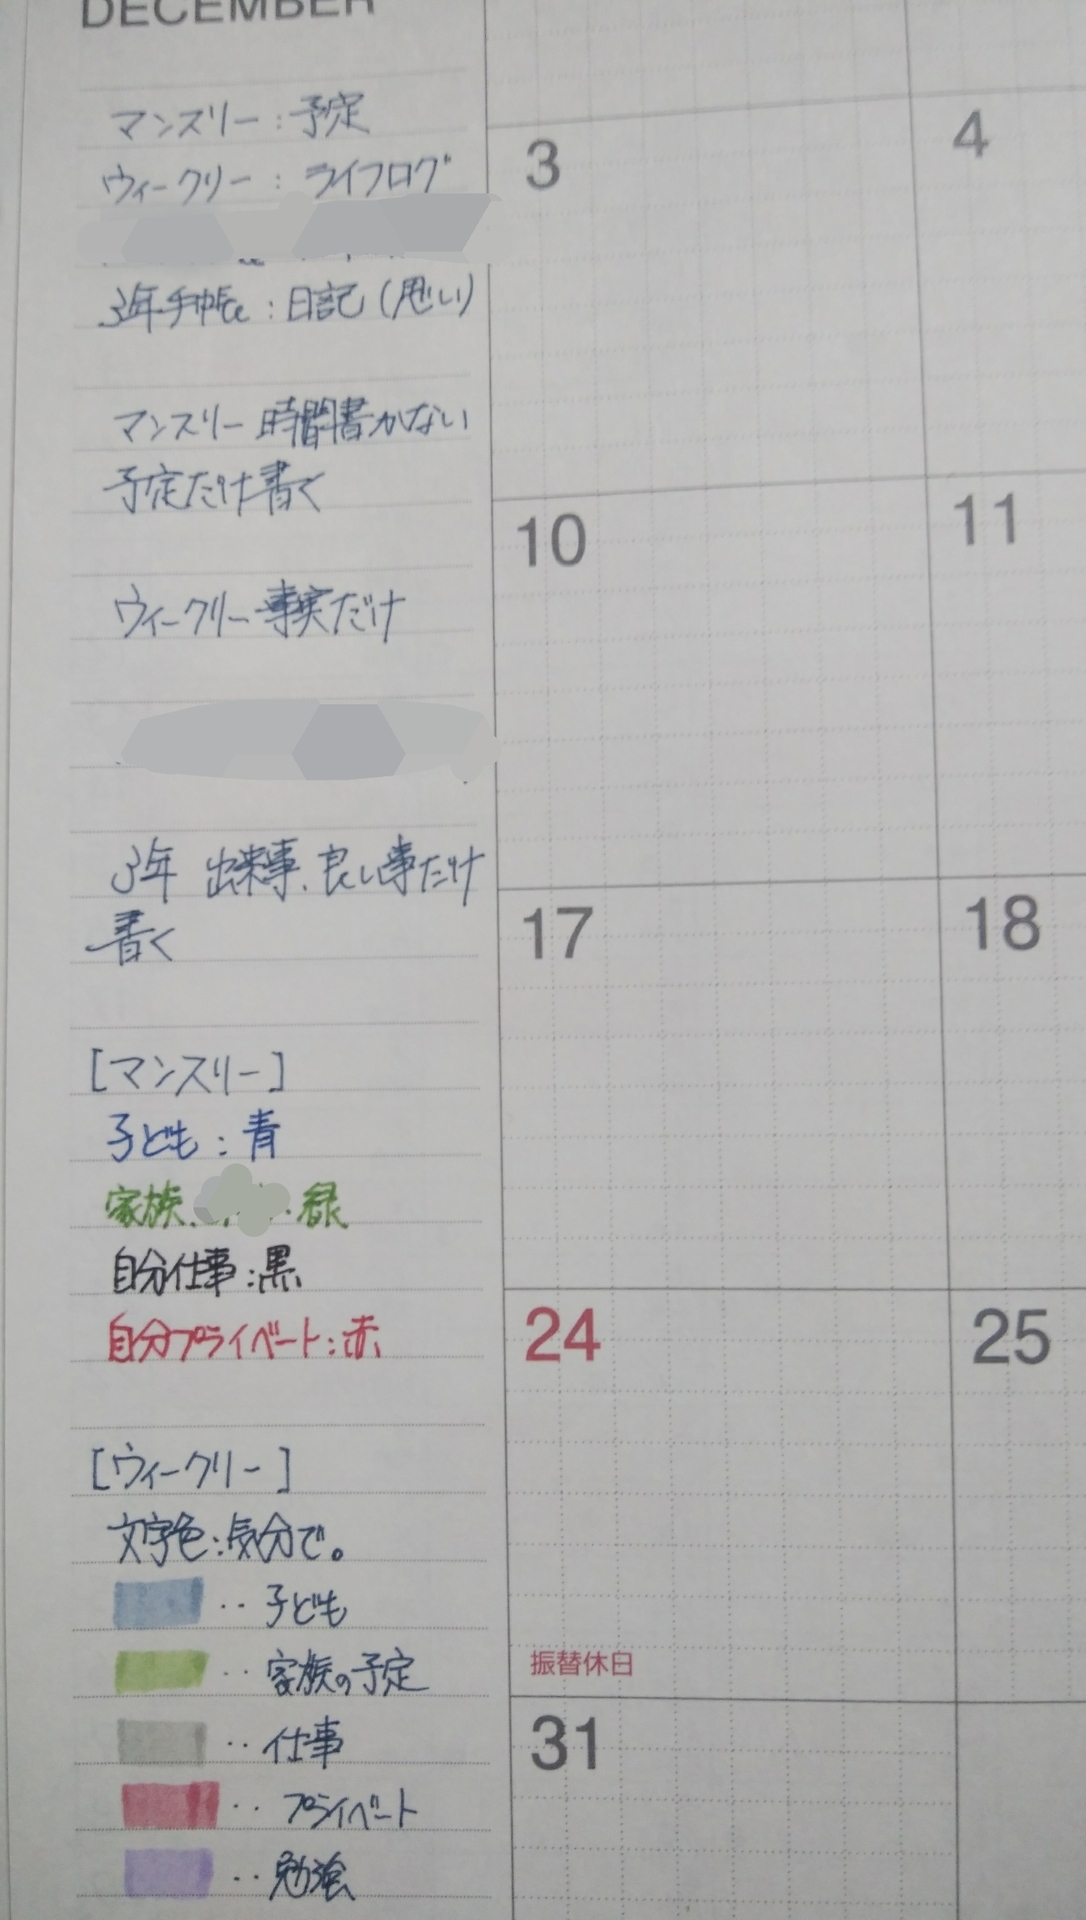 DECEMBER
マンスリー：予定
ウィークリー：ライフログ
3年手帳：日記（思い）
マンスリー 時間書かない
予定だけ書く
ウィークリー 事実だけ
3年 出来事、良い事だけ
書く
[マンスリー]
子ども：青
家族、緑
自分仕事：黒
自分プライベート：赤
[ウィークリー]
文字色：気分で。
‥子ども
‥家族の予定
‥仕事
‥プライベート
‥勉強
3
4
10
11
17
18
24
25
振替休日
31